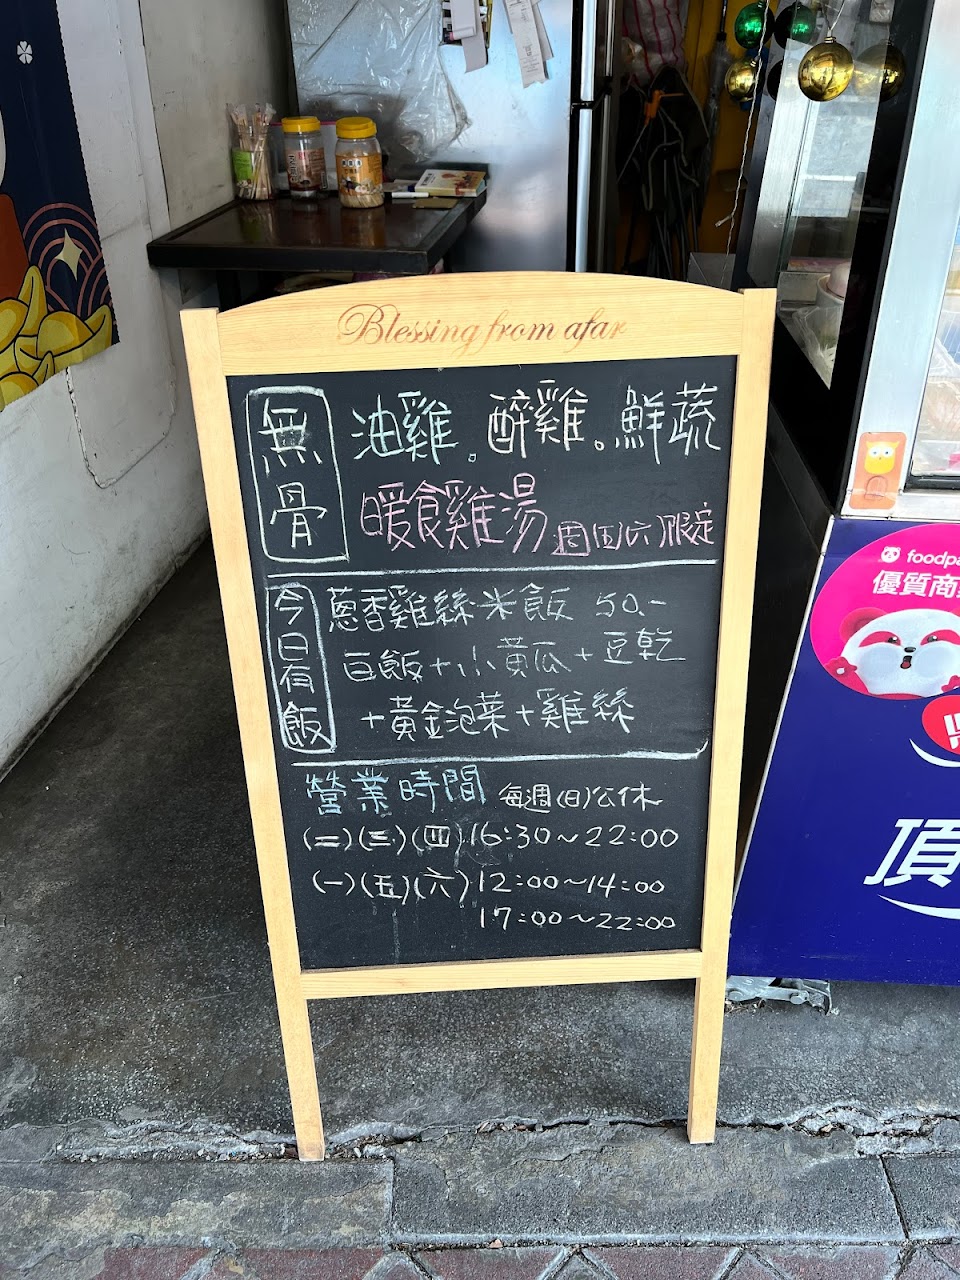 Blessing from afar
無骨
油雞。醉雞。鮮蔬
暖食雞湯 週(五)(六)限定
今日有飯
蔥香雞絲米飯 50.-
白飯+小黃瓜+豆乾
+黃金泡菜+雞絲
營業時間 每週(日)公休
(二)(三)(四)16:30~22:00
(一)(五)(六)12:00~14:00
17:00~22:00
foodpa
優質商
頂